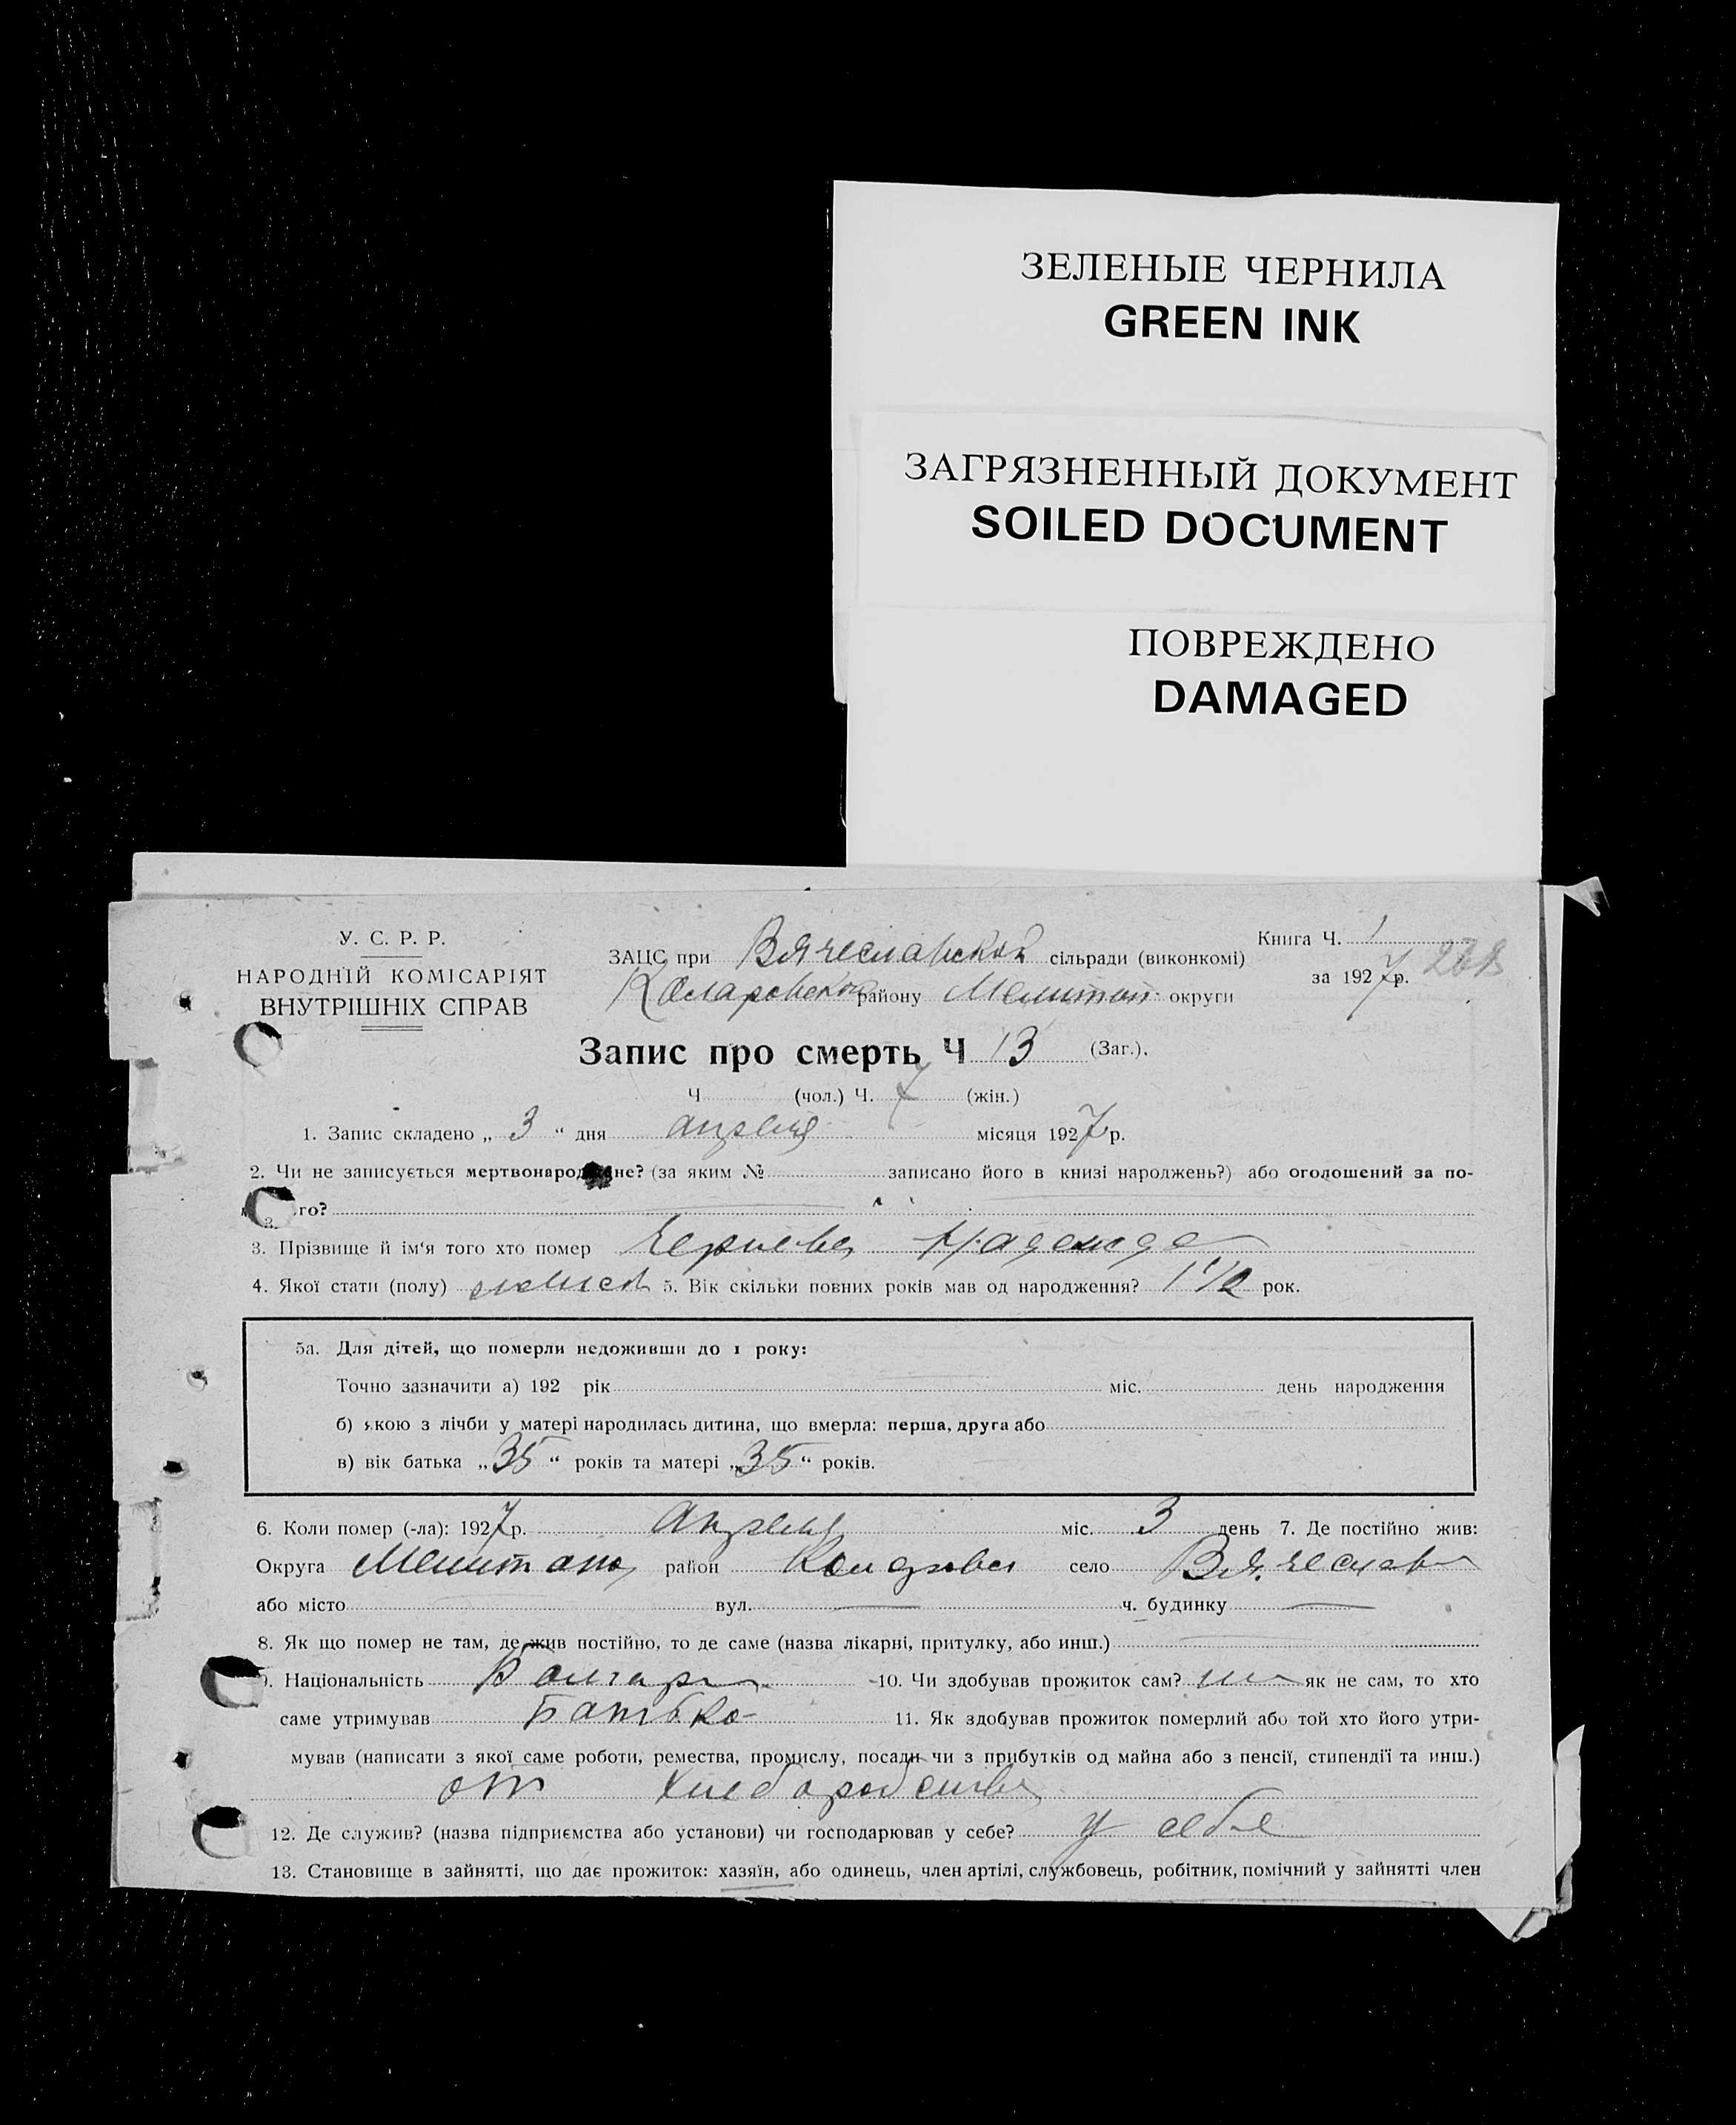 ЗЕЛЕНЫЕ ЧЕРНИЛА
GREEN INK
ЗАГРЯЗНЕННЫЙ ДОКУМЕНТ
SOILED DOCUMENT
ПОВРЕЖДЕНО
DAMAGED
У. С. Р. Р.
НАРОДНІЙ КОМІСАРІЯТ
ВНУТРІШНІХ СПРАВ
ЗАЦС при Вячеславской сільради (виконкомі)
Коларовского району Мелитоп. округи
Книга Ч. 1
за 1927 р.
Запис про смерть Ч 13 (Заг.).
Ч (чол.) Ч. 7 (жін.)
1. Запис складено „ 3 “ дня апреля місяця 1927 р.
2. Чи не записується мертвонароджене? (за яким № записано його в книзі народжень?) або оголошений за по-
го?
3. Прізвище й ім‘я того хто помер Надежда
4. Якої стати (полу) 5. Вік скільки повних років мав од народження? 1 1/2 рок.
5а. Для дітей, що померли недоживши до 1 року:
Точно зазначити а) 192 рік міс. день народження
б) якою з лічби у матері народилась дитина, що вмерла: перша, друга або
в) вік батька „35“ років та матері „35“ років.
6. Коли помер (-ла): 1927 р. Апреля міс. 3 день 7. Де постійно жив:
Округа Мелитопо район село Вячеслав
або місто вул. ч. будинку
8. Як що помер не там, де жив постійно, то де саме (назва лікарні, притулку, або инш.)
9. Національність Болгары 10. Чи здобував прожиток сам? як не сам, то хто
саме утримував Батько 11. Як здобував прожиток померлий або той хто його утри-
мував (написати з якої саме роботи, ремества, промислу, посади чи з прибутків од майна або з пенсії, стипендії та инш.)
от хлеборобства
12. Де служив? (назва підприємства або установи) чи господарював у себе? у себе
13. Становище в зайнятті, що дає прожиток: хазяїн, або одинець, член артілі, службовець, робітник, помічний у зайнятті член